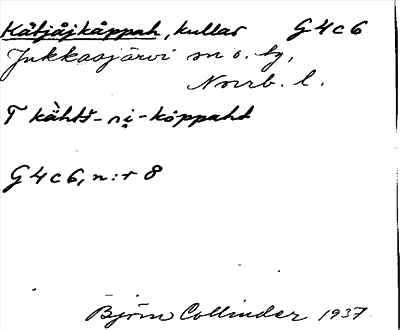 Kåtjåjkåppah, kullar G4c6
Jukkasjärvi sn o. tg,
Norrb. l.
T kàhtš-ri̮-kòppahd
G4c6, n:r 8
Björn Collinder 1937.